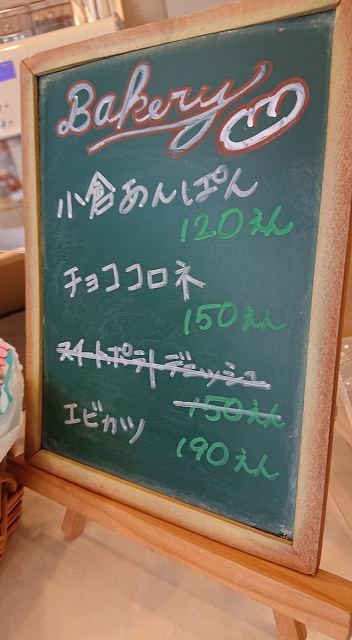 Bakery
小倉あんぱん
120えん
チョココロネ
150えん
スイートポテトデニッシュ
150えん
エビカツ
190えん